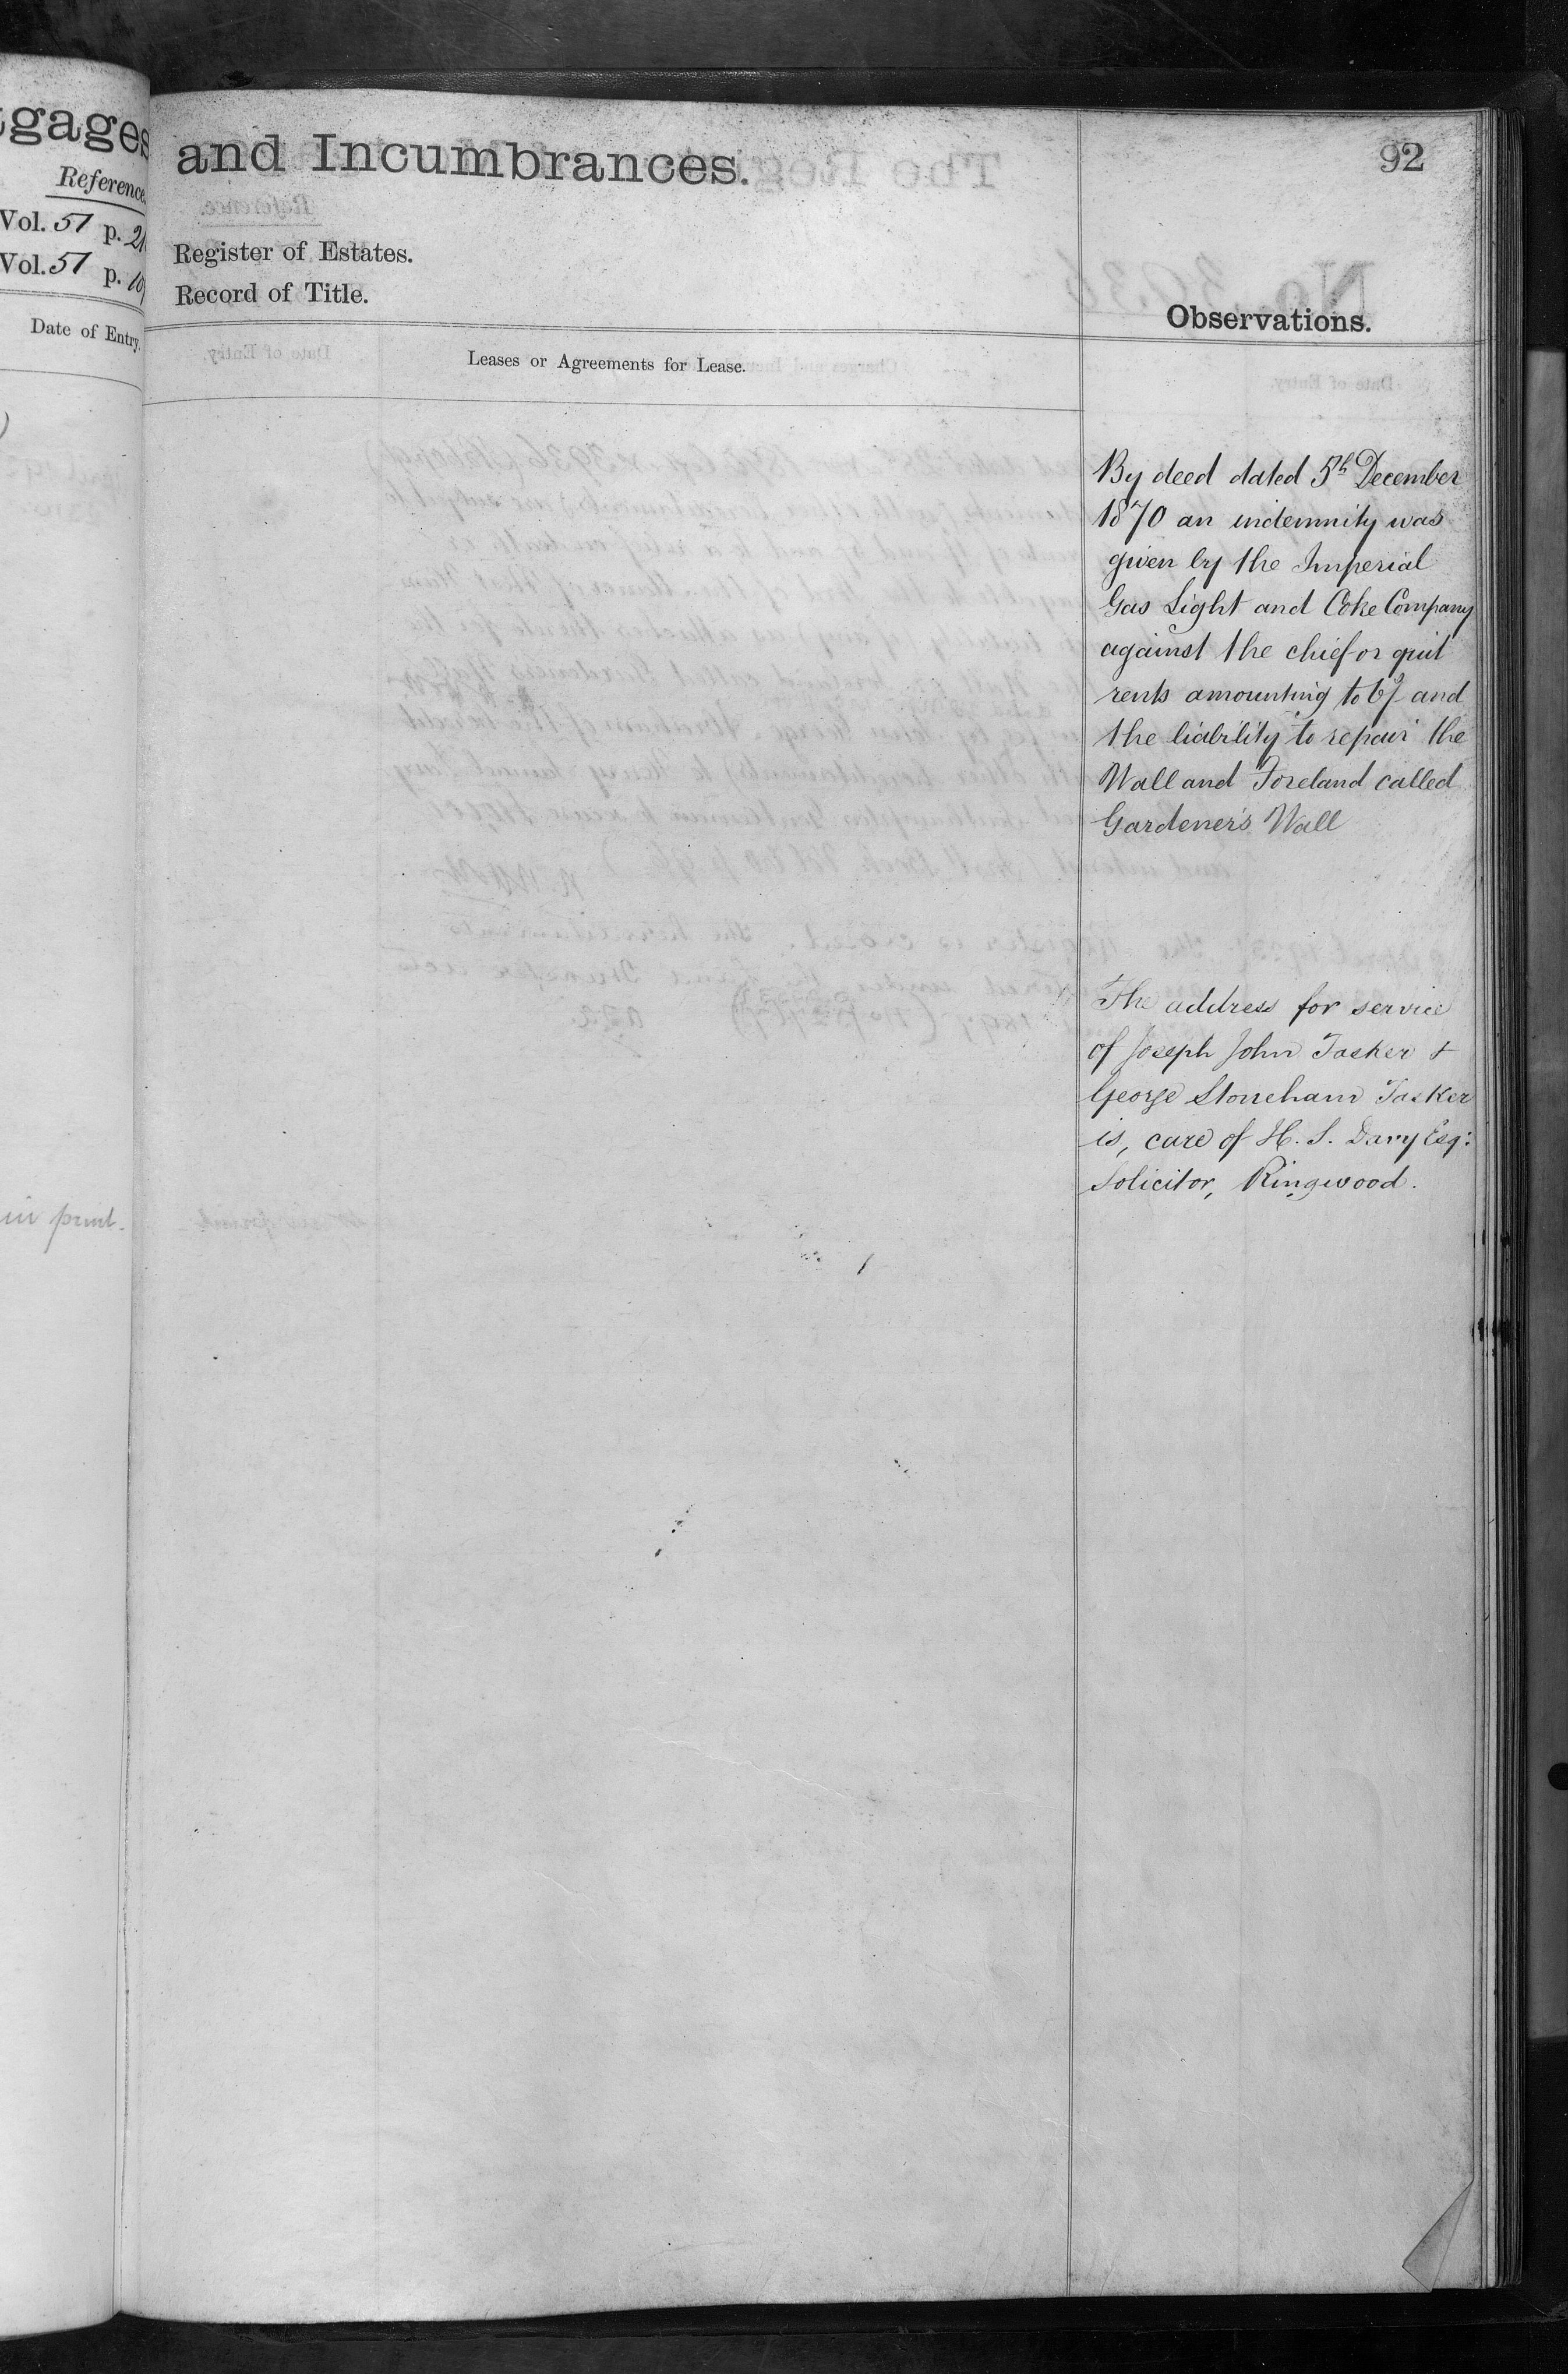 tgages
Reference
Vol. 57 p. 21
Vol. 57 p. 10
Date of Entry.
in print.
and Incumbrances.
92
Register of Estates.
Record of Title.
Observations.
Leases or Agreements for Lease.
By deed dated 5th December
1870 an indemnity was
given by the Imperial
Gas Light and Coke Company
against the chief or quit
rents amounting to and
the liability to repair the
Wall and Foreland called
Gardener's Wall
The address for service
of Joseph John Tasker &
George Stoneham Tasker
is, care of H. S. Davy Esq:
Solicitor, Ringwood.